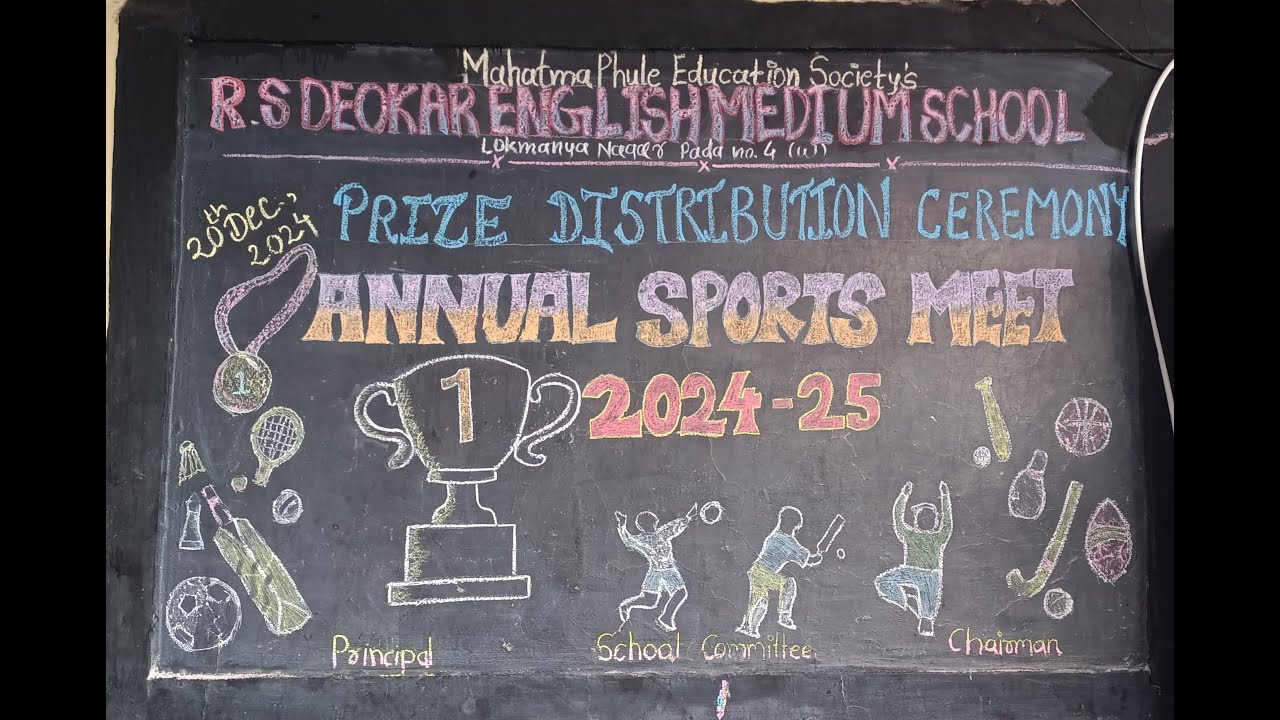 Mahatma Phule Education Society's
R.S DEOKAR ENGLISH MEDIUM SCHOOL
Lokmanya Nagar Pada no. 4 (w)
20th Dec., 2024
PRIZE DISTRIBUTION CEREMONY
ANNUAL SPORTS MEET
2024-25
1
1
Principal
School Committee
Chairman